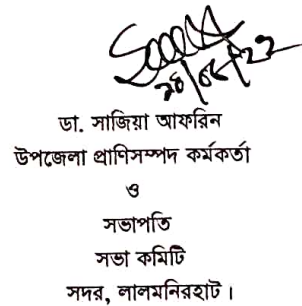 ডা. সাজিয়া আফরিন
উপজেলা প্রাণিসম্পদ কর্মকর্তা
ও
সভাপতি
সভা কমিটি
সদর, লালমনিরহাট।